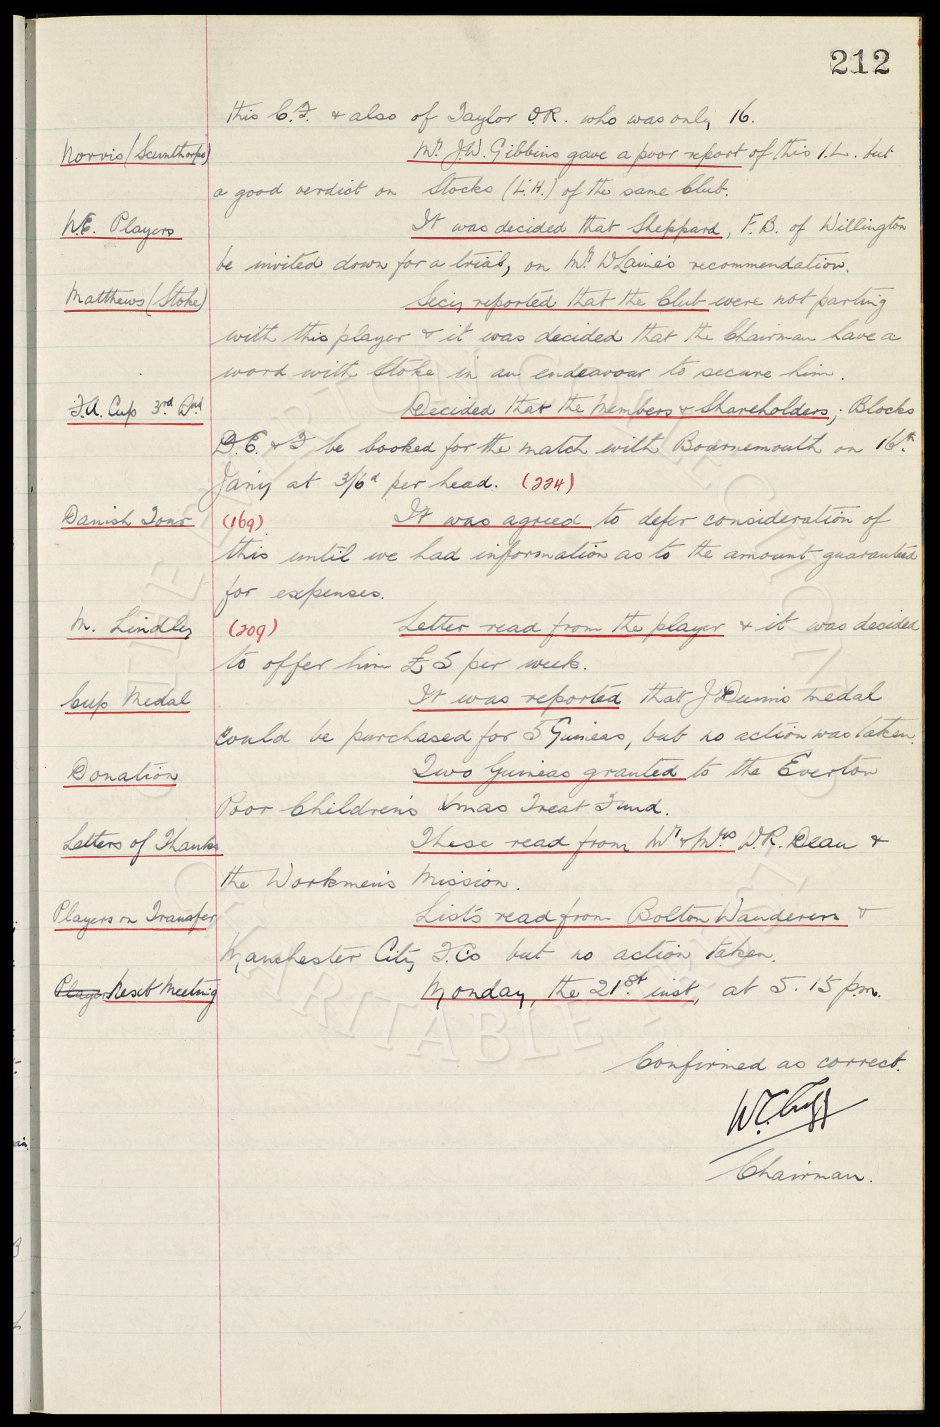 212
this C.F. & also of Taylor O.R. who was only 16.
Norris (Scunthorpe) Mr. J.W. Gibbins gave a poor report of this I.L. but
a good verdict on Stocks (L.H.) of the same Club.
N.E. Players It was decided that Sheppard, F.B. of Willington
be invited down for a trial, on Mr. DLaine's recommendation.
Matthews (Stoke) Secy. reported that the Club were not parting
with this player & it was decided that the Chairman have a
word with Stoke in an endeavour to secure him.
F.A. Cup 3rd Rnd Decided that the Members & Shareholders, Blocks
D.E. & F be booked for the match with Bournemouth on 16th.
Jany at 3/6d per head. (224)
Danish Tour (169) It was agreed to defer consideration of
this until we had information as to the amount guaranteed
for expenses.
M. Lindley (209) Letter read from the player & it was decided
to offer him £5 per week.
Cup Medal It was reported that J Dunn's medal
could be purchased for 5 Guineas, but no action was taken.
Donation Two Guineas granted to the Everton
Poor Children's Xmas Treat Fund.
Letters of Thanks These read from Mr & Mrs W.R. Dean &
the Workmen's Mission.
Players on Transfer Lists read from Bolton Wanderers &
Manchester City F.Cs but no action taken.
Player Next Meeting Monday, the 21st. inst, at 5.15 p.m.
Confirmed as correct.
W.C. Cuff
Chairman.
THE EVERTON COLLECTION
CHARITABLE TRUST